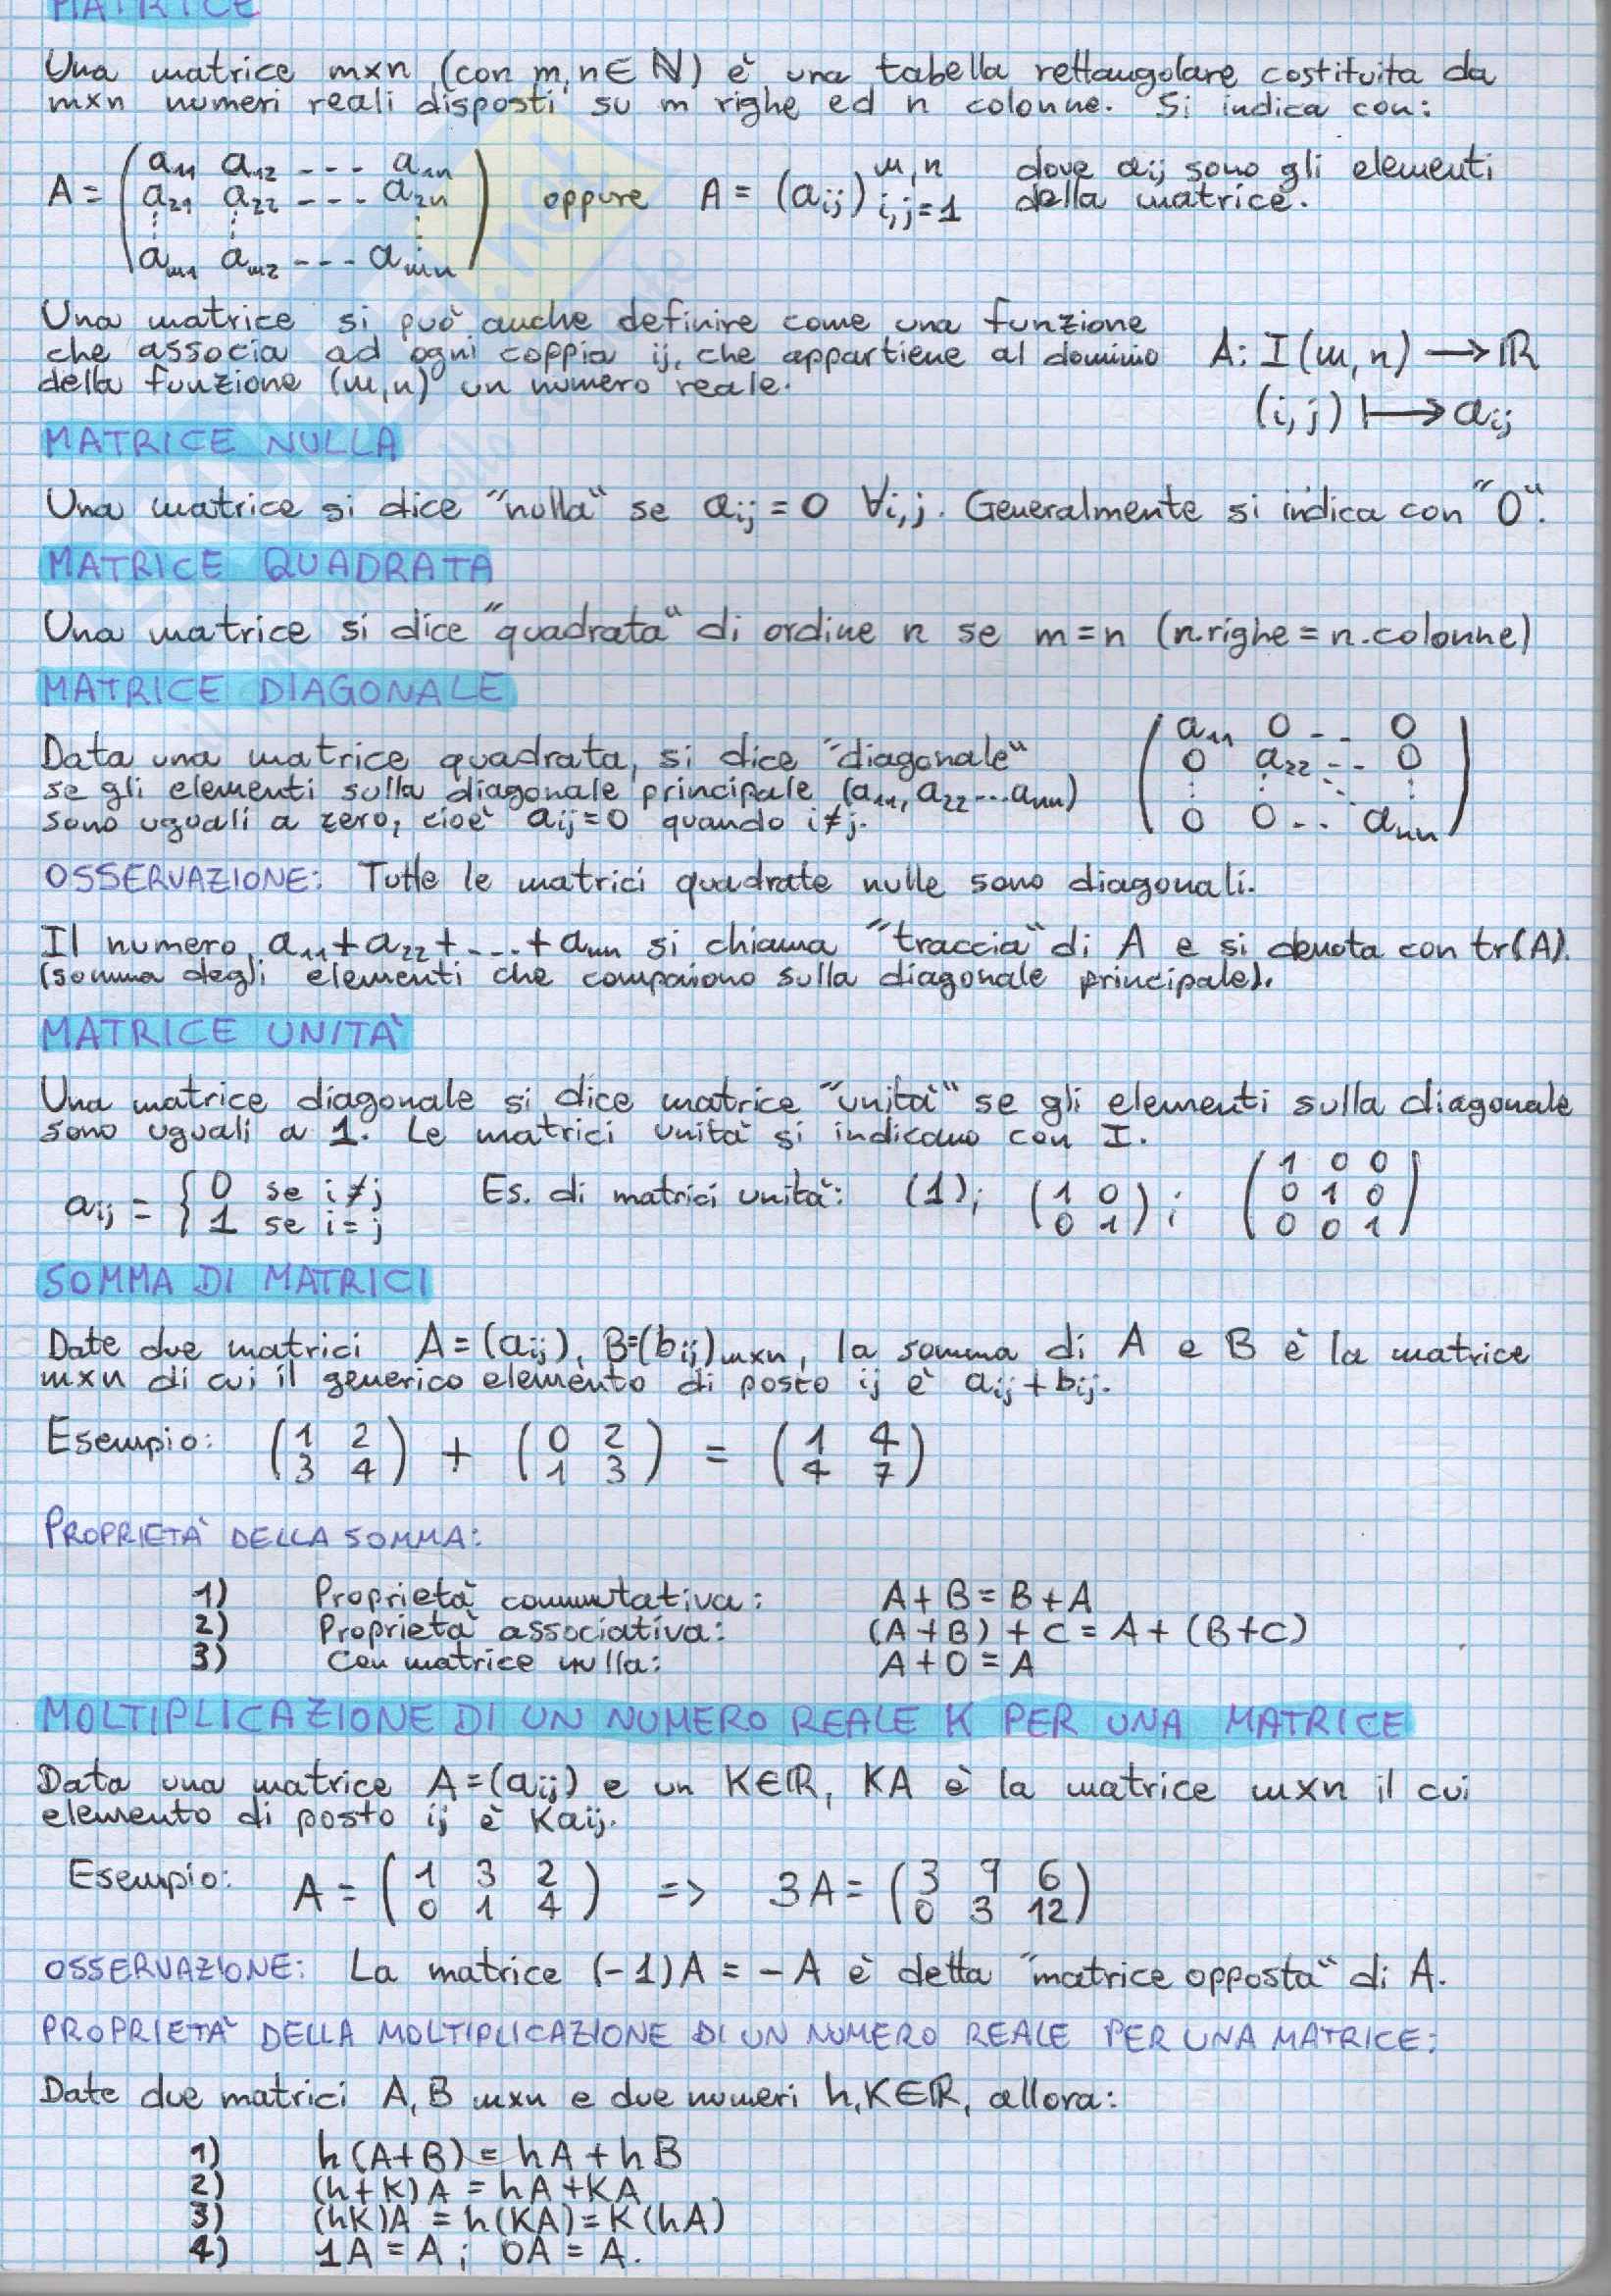 MATRICE
Una matrice m×n (con m,n∈ℕ) è una tabella rettangolare costituita da
m×n numeri reali disposti su m righe ed n colonne. Si indica con:
A = (a11 a12 --- a1n
a21 a22 --- a2n
⋮ ⋮ ⋮
am1 am2 --- amn) oppure A = (aij) m,n i,j=1 dove aij sono gli elementi
della matrice.
Una matrice si può anche definire come una funzione
che associa ad ogni coppia ij, che appartiene al dominio A: I(m,n) → ℝ
della funzione (m,n) un numero reale.
(i,j) ↦ aij
MATRICE NULLA
Una matrice si dice "nulla" se aij = 0 ∀i,j. Generalmente si indica con "0".
MATRICE QUADRATA
Una matrice si dice "quadrata" di ordine n se m = n (n.righe = n.colonne)
MATRICE DIAGONALE
Data una matrice quadrata, si dice "diagonale"
se gli elementi sulla diagonale principale (a11, a22 ... ann)
sono uguali a zero, cioè aij=0 quando i≠j.
(a11 0 -- 0
0 a22 -- 0
⋮ ⋮ ⋱ ⋮
0 0 -- ann)
OSSERVAZIONE: Tutte le matrici quadrate nulle sono diagonali.
Il numero a11+a22+...+ann si chiama "traccia" di A e si denota con tr(A).
(somma degli elementi che compaiono sulla diagonale principale).
MATRICE UNITÀ
Una matrice diagonale si dice matrice "unità" se gli elementi sulla diagonale
sono uguali a 1. Le matrici unità si indicano con I.
aij = { 0 se i≠j
1 se i=j
Es. di matrici unità: (1); (1 0
0 1); (1 0 0
0 1 0
0 0 1)
SOMMA DI MATRICI
Date due matrici A=(aij), B=(bij)m×n, la somma di A e B è la matrice
m×n di cui il generico elemento di posto ij è aij+bij.
Esempio: (1 2
3 4) + (0 2
1 3) = (1 4
4 7)
PROPRIETÀ DELLA SOMMA:
1) Proprietà commutativa: A+B=B+A
2) Proprietà associativa: (A+B)+C=A+(B+C)
3) Con matrice nulla: A+0=A
MOLTIPLICAZIONE DI UN NUMERO REALE K PER UNA MATRICE
Data una matrice A=(aij) e un K∈ℝ, KA è la matrice m×n il cui
elemento di posto ij è Kaij.
Esempio: A = (1 3 2
0 1 4) => 3A = (3 9 6
0 3 12)
OSSERVAZIONE: La matrice (-1)A = -A è detta "matrice opposta" di A.
PROPRIETÀ DELLA MOLTIPLICAZIONE DI UN NUMERO REALE PER UNA MATRICE:
Date due matrici A,B m×n e due numeri h,K∈ℝ, allora:
1) h(A+B) = hA+hB
2) (h+K)A = hA+KA
3) (hK)A = h(KA)=K(hA)
4) 1A = A; 0A = A.